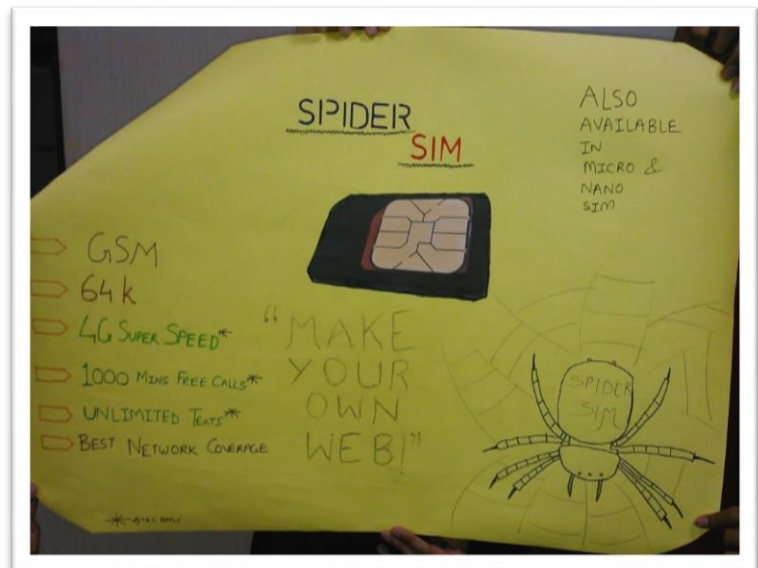 SPIDER
SIM
ALSO
AVAILABLE
IN
MICRO &
NANO
SIM
GSM
64k
4G SUPER SPEED*
1000 MINS FREE CALLS*
UNLIMITED TEXTS*
BEST NETWORK COVERAGE
"MAKE
YOUR
OWN
WEB!"
SPIDER
SIM
APPLY